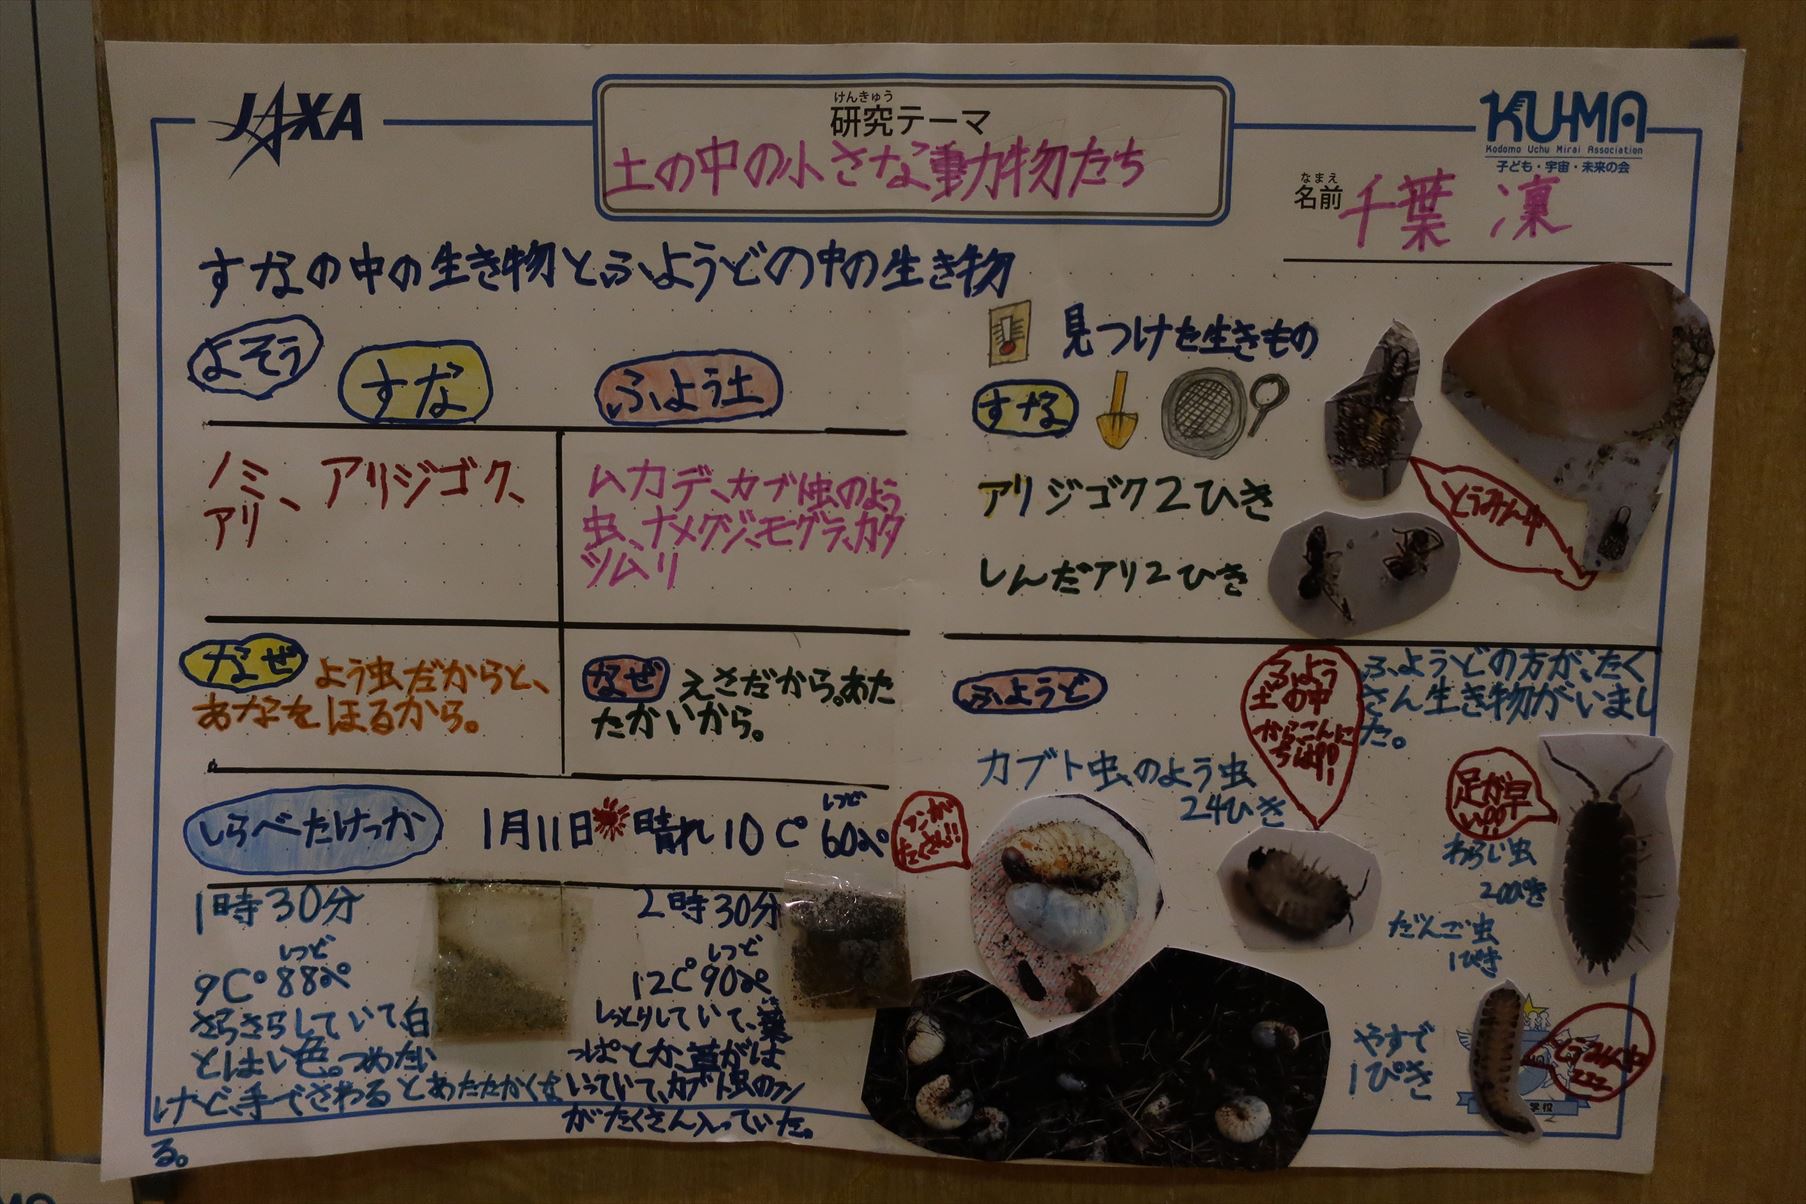 JAXA
けんきゅう
研究テーマ
土の中の小さな動物たち
KU-MA
Kodomo Uchu Mirai Association
子ども・宇宙・未来の会
なまえ
名前 千葉 凜
すなの中の生き物とふようどの中の生き物
よそう
すな
ふよう土
ノミ、アリジゴク、
アリ
ムカデ、カブト虫のよう
虫、ナメクジ、モグラ、カタ
ツムリ
なぜ よう虫だからと、
あなをほるから。
なぜ えさだから。あた
たかいから。
しらべたけっか
1月11日 晴れ 10C° しつど 60%
1時30分
しつど
9C° 88%
さらさらしていて、白
とはい色。つめたい
けど、手でさわるとあたたかくな
る。
2時30分
しつど
12C° 90%
しっとりしていて、葉
っぱとか、草がは
いっていて、カブト虫のフン
がたくさん入っていた。
見つけた生きもの
すな
アリジゴク2ひき
しんだアリ2ひき
とうみん中
ふようど
ふよう
土の中
からこんに
ちは!!
ふようどの方が、たく
さん生き物がいまし
た。
カブト虫のよう虫
24ひき
フンが
たくさん!!
足が早
い!!
わらじ虫
だんご虫
1ぴき
やすで
1ぴき
学校